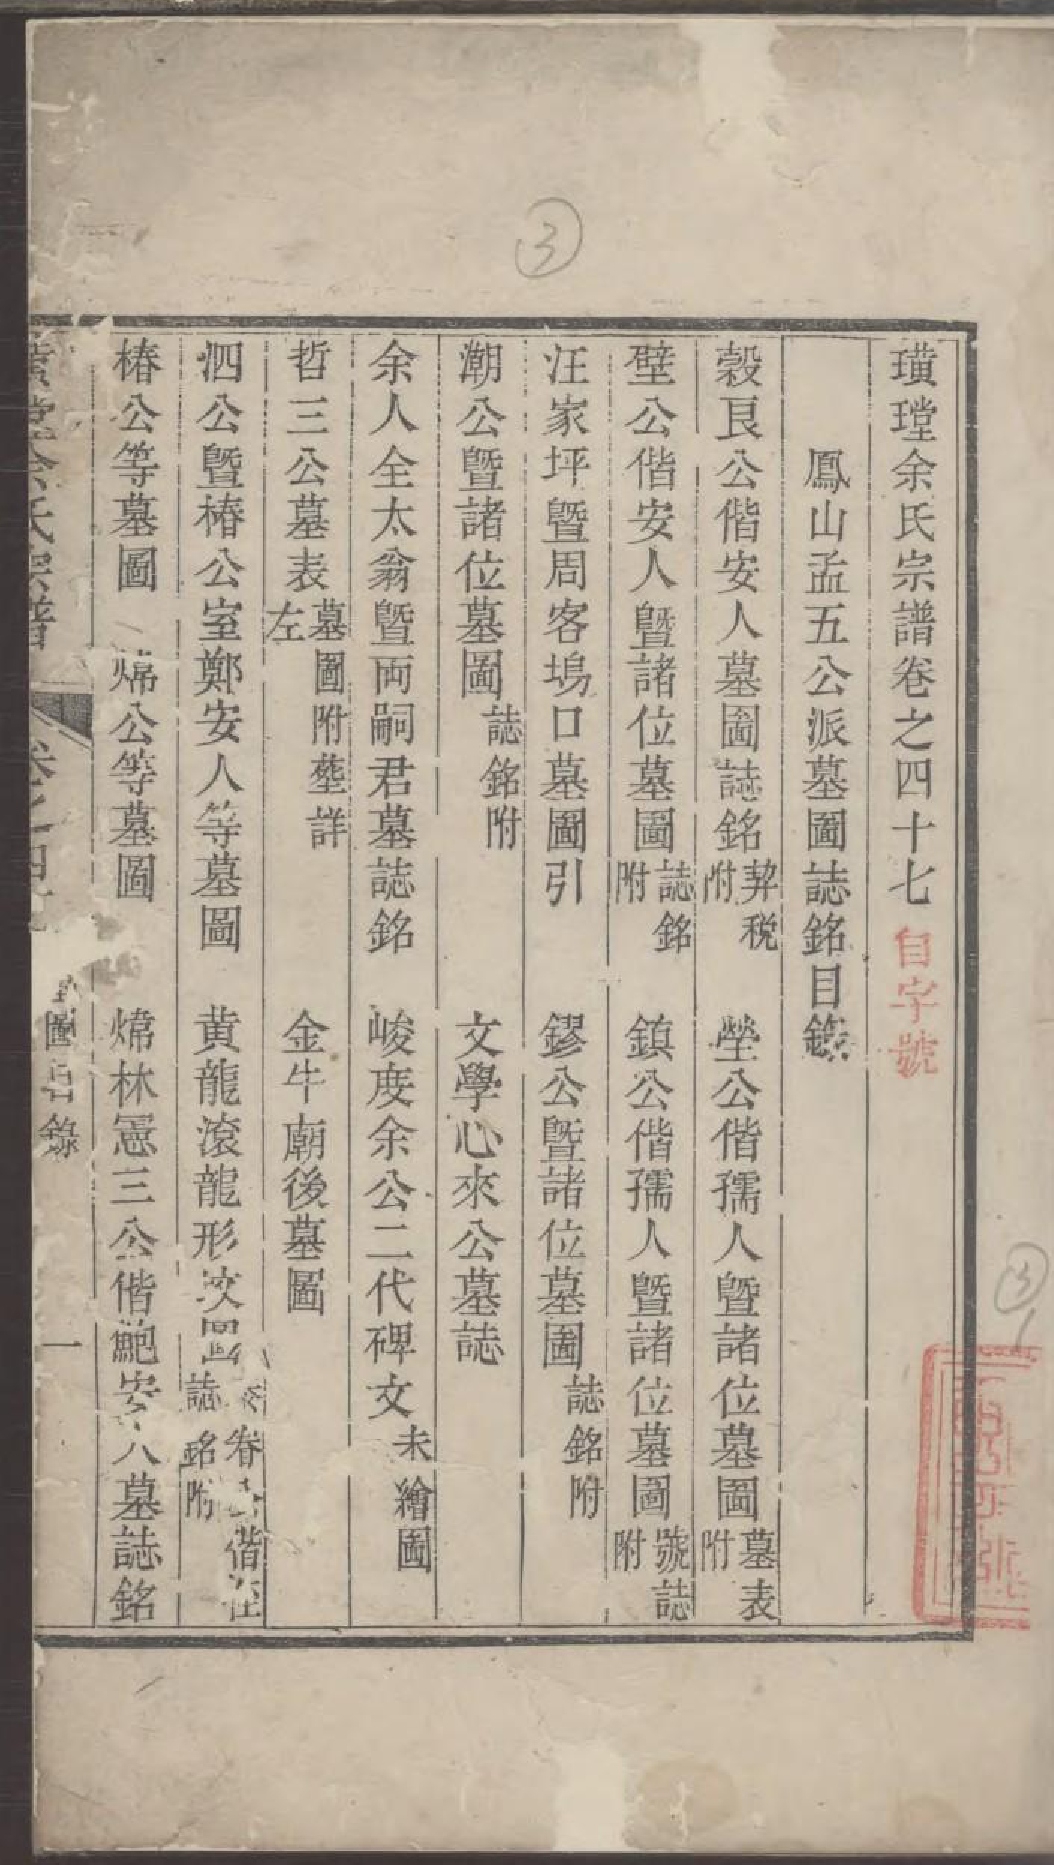 璜瑝余氏宗譜卷之四十七 自字號
鳳山孟五公派墓圖誌銘目錄
榖良公偕安人墓圖誌銘 契税附 塋公偕孺人暨諸位墓圖 墓表附
壁公偕安人暨諸位墓圖 誌銘附 鎮公偕孺人暨諸位墓圖 號誌附
汪家坪暨周客塢口墓圖引 鏐公暨諸位墓圖 誌銘附
潮公暨諸位墓圖 誌銘附 文學心來公墓誌
余人全太翁暨両嗣君墓誌銘 峻度余公二代碑文 未繪圖
哲三公墓表 墓圖附塟詳左 金牛廟後墓圖
泗公暨椿公室鄭安人等墓圖 黄龍滾龍形坟圖 卷公偕 誌銘附
椿公等墓圖 煒公等墓圖 煒林憲三公偕鮑安人墓誌銘
余氏宗譜 卷之四 圖目錄 一
3
3